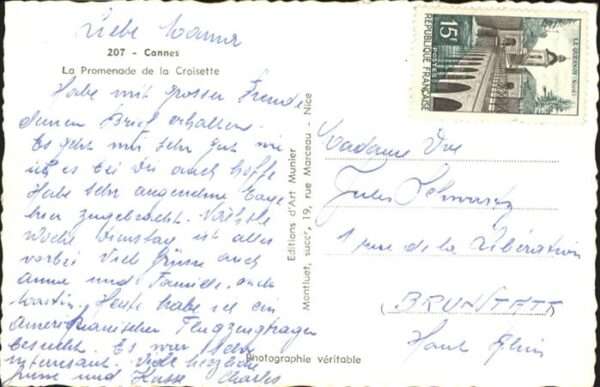 Liebe
207 - Cannes
La Promenade de la Croisette
Habe mit grosser Freude
deinen Brief erhalten.
Es geht mir sehr gut wie
ist es bei dir auch hoffe
Habe sehr angenehme Tage
hier zugebracht. Nächste
Woche Dienstag ist alles
vorbei Viel Grüsse auch
Anna und Familie. auch
Martin. Heute habe ich ein
Amerikanischen Flugzeugtrager
besucht. Es war sehr
interesant. Viele herzliche
und Küsse Charles
Editions d'Art Munier
Montluet, succr, 19, rue Marceau - Nice
Photographie véritable
15F
POSTES
REPUBLIQUE FRANÇAISE
LE QUESNOY
Madame Vve
Jules
1 rue de la Libération
BRUNSTATT
Haut Rhin